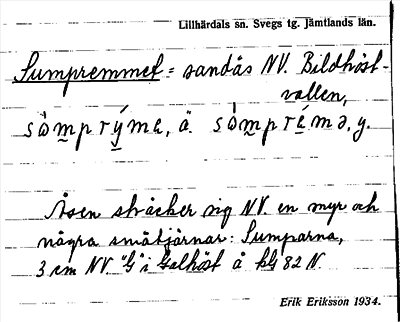 Lillhärdals sn. Svegs tg. Jämtlands län.
Sumpremmet = sandås NV. Bildhöst-
vallen,
Åsen sträcker sig NV. en myr och
några småtjärnar: Sumparna,
3 cm NV "G" i Galhöst å kbl 82 N.
Erik Eriksson 1934.